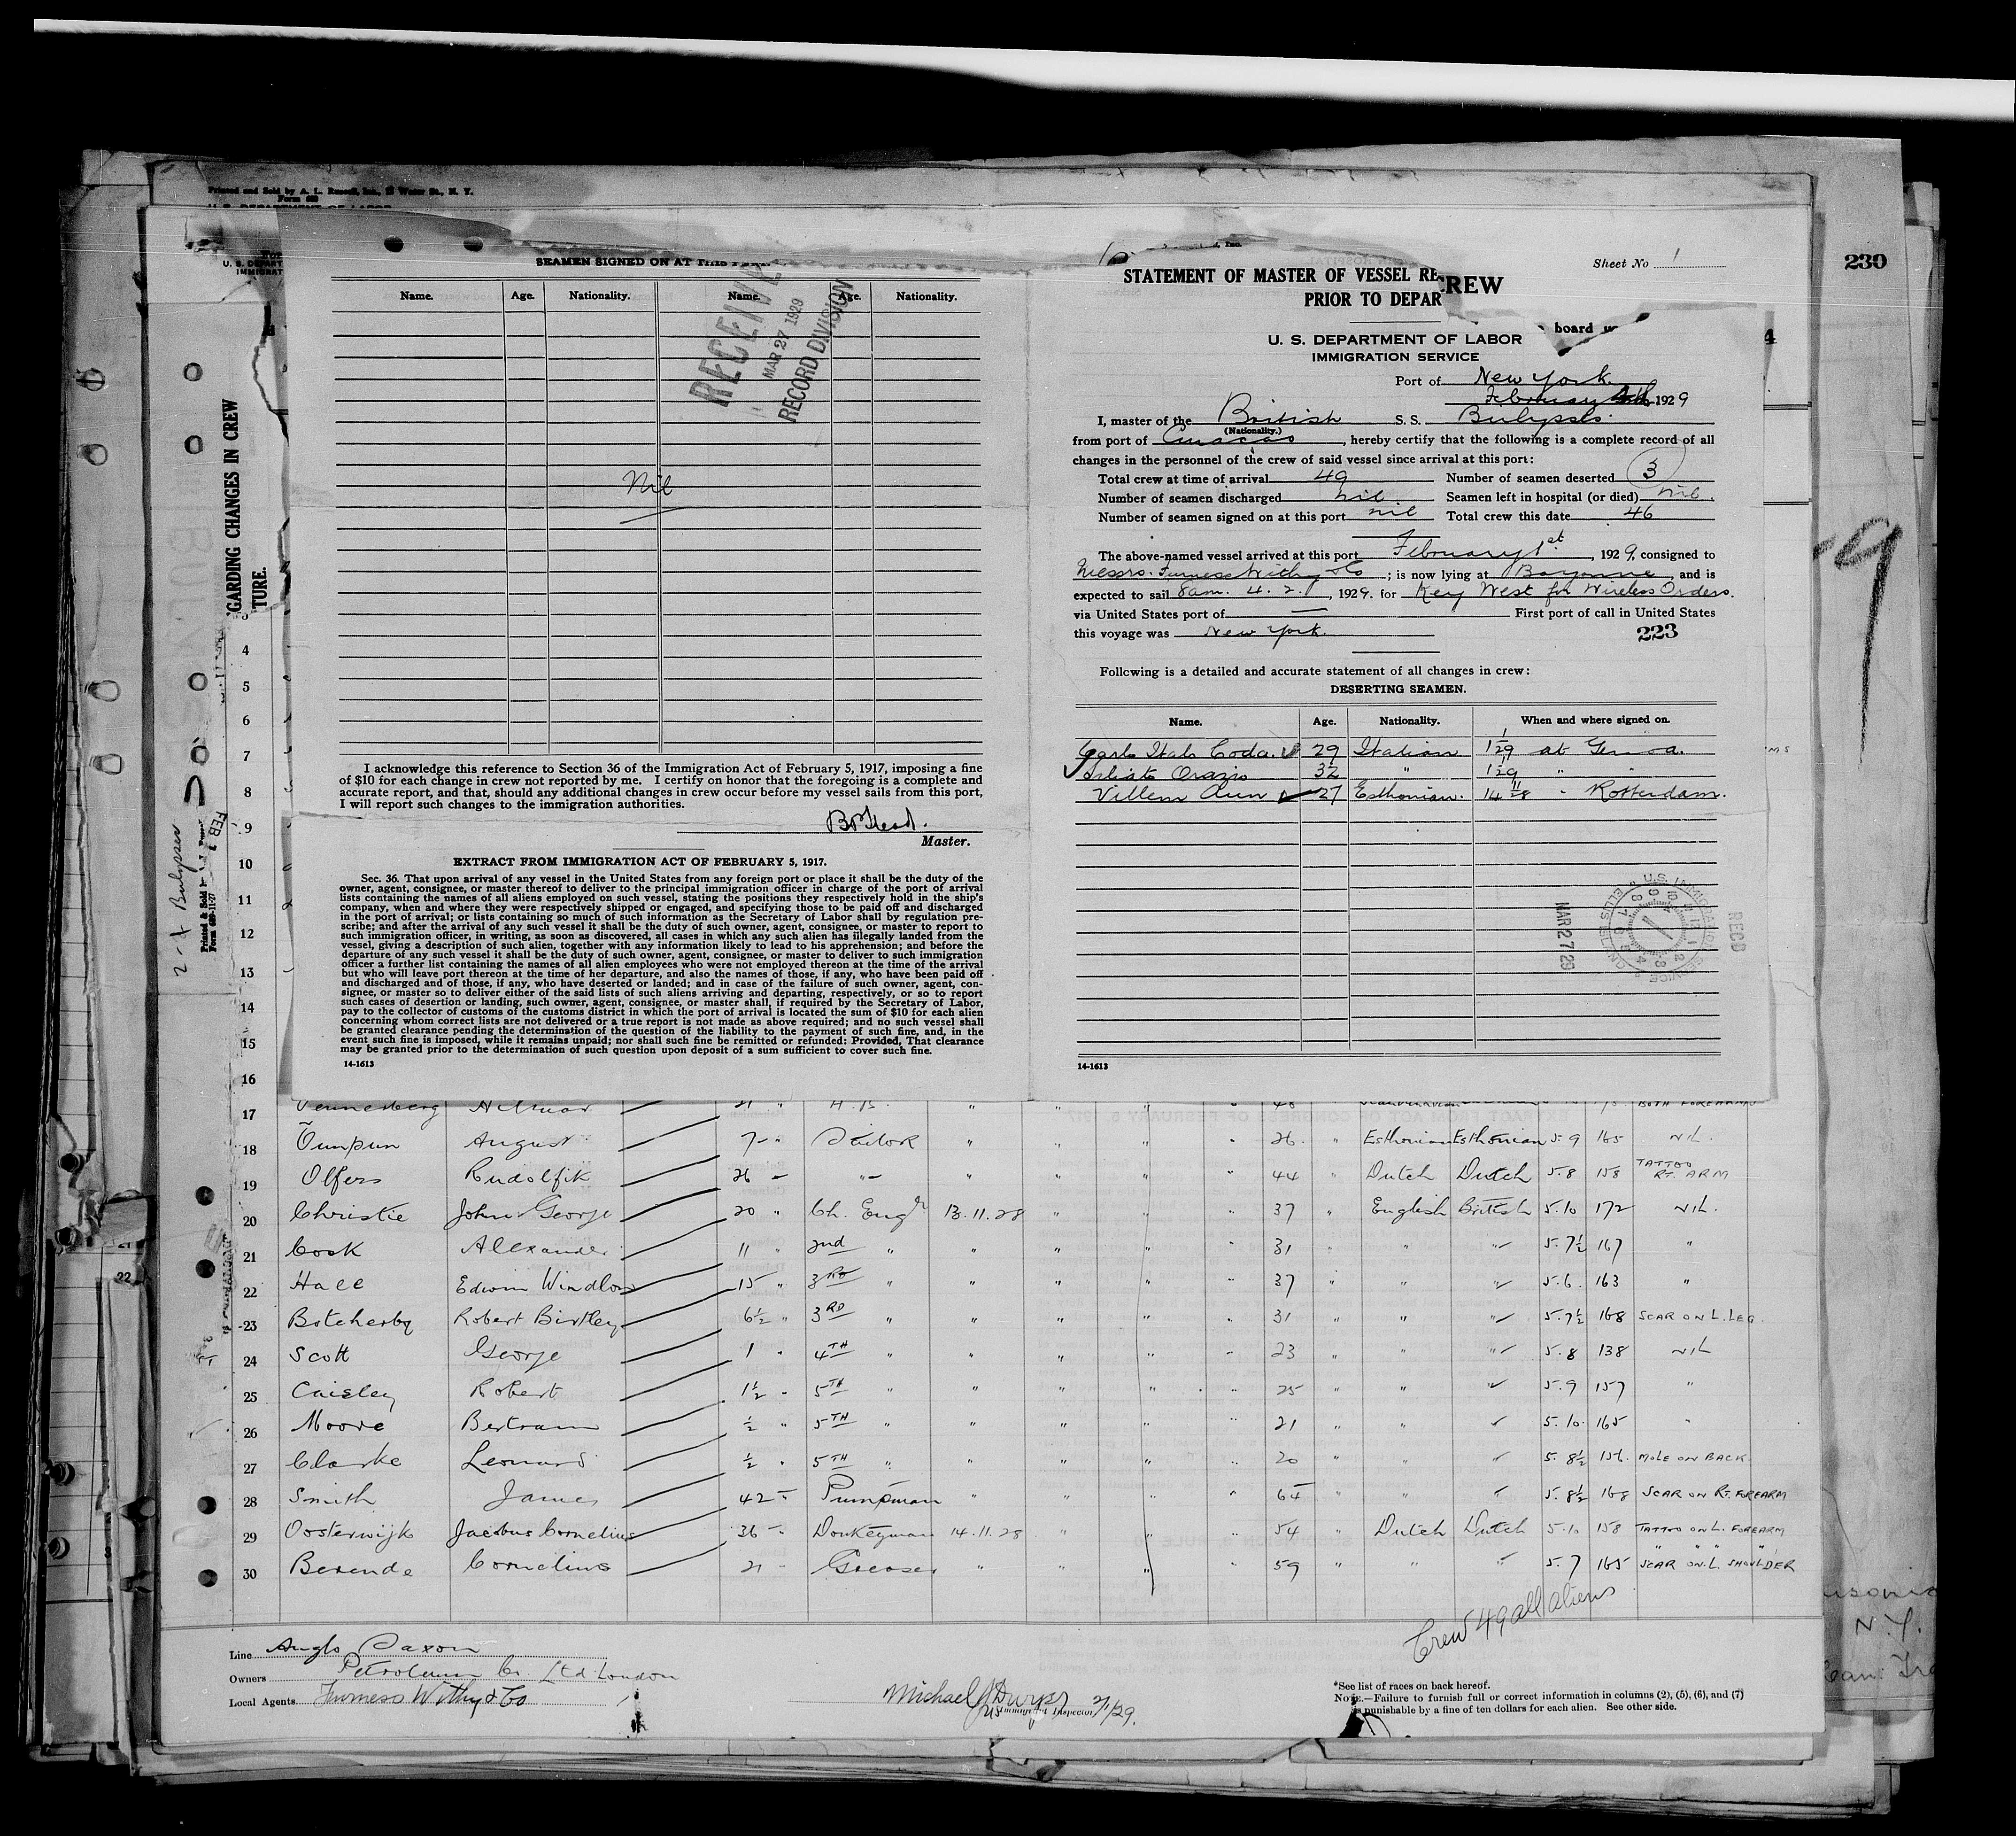 Printed and Sold by A. L. Russell, Inc., Water St., N. Y.
230
SEAMEN SIGNED ON AT THIS
Name. Age. Nationality. Name. Age. Nationality.
RECEIVE
MAR 27 1929
RECORD DIVISION
Nil
I acknowledge this reference to Section 36 of the Immigration Act of February 5, 1917, imposing a fine
of $10 for each change in crew not reported by me. I certify on honor that the foregoing is a complete and
accurate report, and that, should any additional changes in crew occur before my vessel sails from this port,
I will report such changes to the immigration authorities.
Master.
EXTRACT FROM IMMIGRATION ACT OF FEBRUARY 5, 1917.
Sec. 36. That upon arrival of any vessel in the United States from any foreign port or place it shall be the duty of the
owner, agent, consignee, or master thereof to deliver to the principal immigration officer in charge of the port of arrival
lists containing the names of all aliens employed on such vessel, stating the positions they respectively hold in the ship's
company, when and where they were respectively shipped or engaged, and specifying those to be paid off and discharged
in the port of arrival; or lists containing so much of such information as the Secretary of Labor shall by regulation pre-
scribe; and after the arrival of any such vessel it shall be the duty of such owner, agent, consignee, or master to report to
such immigration officer, in writing, as soon as discovered, all cases in which any such alien has illegally landed from the
vessel, giving a description of such alien, together with any information likely to lead to his apprehension; and before the
departure of any such vessel it shall be the duty of such owner, agent, consignee, or master to deliver to such immigration
officer a further list containing the names of all alien employees who were not employed thereon at the time of the arrival
but who will leave port thereon at the time of her departure, and also the names of those, if any, who have been paid off
and discharged and of those, if any, who have deserted or landed; and in case of the failure of such owner, agent, con-
signee, or master so to deliver either of the said lists of such aliens arriving and departing, respectively, or so to report
such cases of desertion or landing, such owner, agent, consignee, or master shall, if required by the Secretary of Labor,
pay to the collector of customs of the customs district in which the port of arrival is located the sum of $10 for each alien
concerning whom correct lists are not delivered or a true report is not made as above required; and no such vessel shall
be granted clearance pending the determination of the question of the liability to the payment of such fine, and, in the
event such fine is imposed, while it remains unpaid; nor shall such fine be remitted or refunded: Provided, That clearance
may be granted prior to the determination of such question upon deposit of a sum sufficient to cover such fine.
14-1613
Sheet No 1
STATEMENT OF MASTER OF VESSEL RE
CREW
PRIOR TO DEPAR
board
U. S. DEPARTMENT OF LABOR
IMMIGRATION SERVICE
Port of New York.
February 4th 1929
I, master of the British S. S. Bulysses
(Nationality.)
from port of Curacao, hereby certify that the following is a complete record of all
changes in the personnel of the crew of said vessel since arrival at this port:
Total crew at time of arrival 49 Number of seamen deserted 3
Number of seamen discharged nil. Seamen left in hospital (or died) nil.
Number of seamen signed on at this port nil Total crew this date 46
The above-named vessel arrived at this port February 1st, 1929, consigned to
Messrs. Furness Withy & Co; is now lying at Bayonne, and is
expected to sail 8am. 4. 2., 1929. for Key West for Wireless Orders.
via United States port of — First port of call in United States
this voyage was New York.
223
Following is a detailed and accurate statement of all changes in crew:
DESERTING SEAMEN.
Name. Age. Nationality. When and where signed on.
Carlo Italo Coda. 29 Italian 1 1/29 at Genoa.
Orazio 32 " 1 1/29 " "
Villem 27 Esthonian. 14 11/28 " Rotterdam.
MAR 27 29
U.S. IMMIGRATION SERVICE ELLIS ISLAND
14-1613
GARDING CHANGES IN CREW
TURE.
2-1 Bulysses
4
5
6
7
8
9
10
11
12
13
14
15
16
17
18 August 7 " Sailor " " " " 26 " Esthonian Esthonian 5.9 165 NIL.
19 Olfers Rudolfik 26 " " 44 " Dutch Dutch 5.8 158 TATTOO RT. ARM
20 Christie John George 20 " Ch. Engr 13.11.28 " " " 37 " English British 5.10 172 NIL.
21 Cook Alexander 11 " 2nd " " " " " 31 " " " 5.7½ 167 "
22 Hall Edwin Windlow 15 " 3RD " " " " " 37 " " " 5.6. 163 "
23 Botcherby Robert Birtley 6½ " 3RD " " " " " 31 " " " 5.7½ 168 SCAR ON L. LEG.
24 Scott George 1 " 4TH " " " " " 23 " " " 5.8 138 NIL
25 Caisley Robert 1½ " 5TH " " " " " 25 " " " 5.9 157 "
26 Moore Bertram ½ " 5TH " " " " " 21 " " 5.10. 165 "
27 Clarke Leonard ½ " 5TH " " " " " 20 " " 5.8½ 156. MOLE ON BACK
28 Smith James 42 " Pumpman " " " " 65 " " 5.8½ 168 SCAR ON RT. FOREARM
29 Oosterwijk Jacobus Cornelius 36 " Donkeyman 14.11.28 " " " 54 " Dutch Dutch 5.10 158 TATTOO ON L. FOREARM
30 Berende Cornelius 21 " Greaser " " " " 59 " " 5.7 165 SCAR ON L. SHOULDER
Crew 49 all aliens
Line Anglo Saxon
Owners Petroleum Co. Ltd London
Local Agents Furness Withy & Co
Michael
Immigrant Inspector 2/1/29.
*See list of races on back hereof.
NOTE.—Failure to furnish full or correct information in columns (2), (5), (6), and (7)
is punishable by a fine of ten dollars for each alien. See other side.